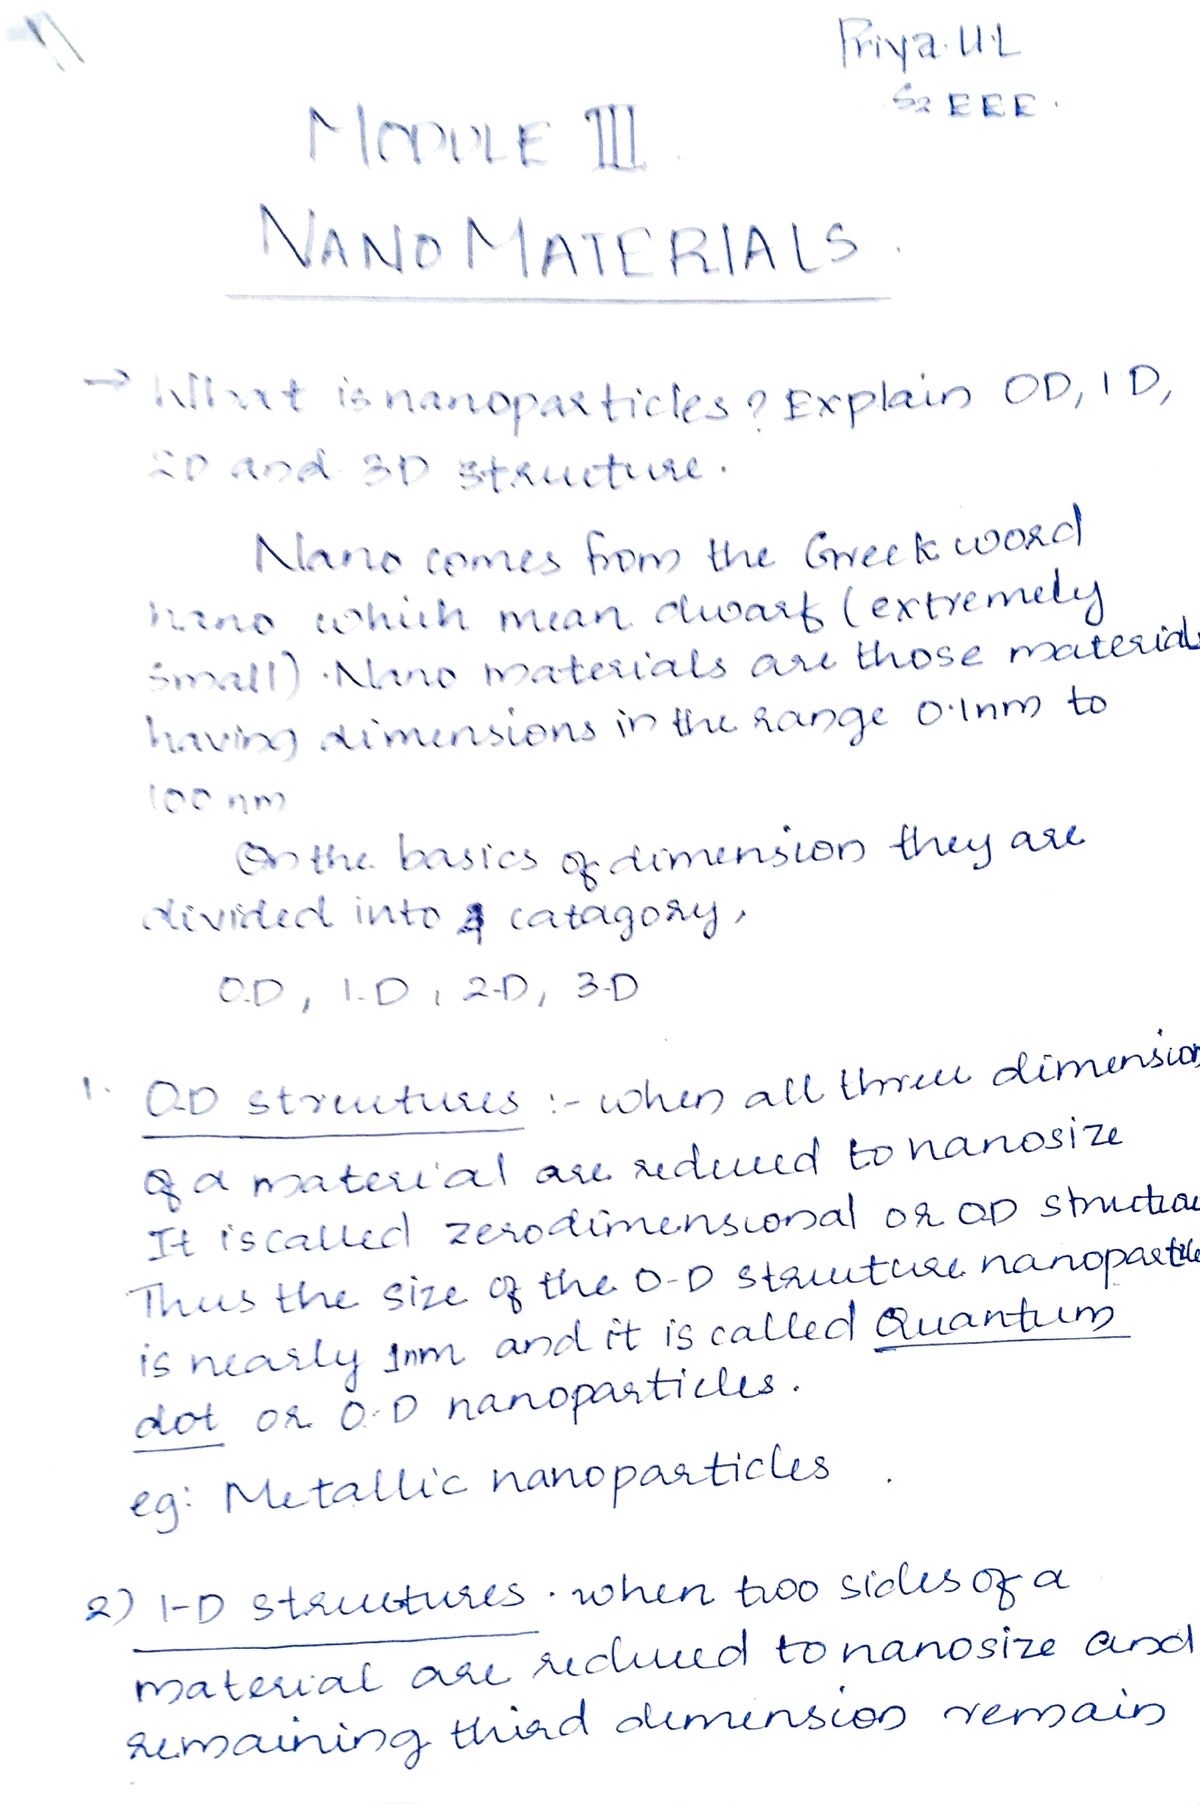 Priya.U.L
S2 EEE.
MODULE III
NANOMATERIALS.
→ What is nanoparticles? Explain 0D, 1D,
2D and 3D structure.
Nano comes from the Greek word
nano which mean dwarf (extremely
small). Nano materials are those materials
having dimensions in the range 0.1nm to
100 nm
On the basics of dimension they are
divided into 4 catagory,
0-D, 1-D, 2-D, 3-D
1. 0-D structures :- when all three dimension
of a material are reduced to nanosize
It is called zerodimensional or 0D structure
Thus the size of the 0-D structure nanoparticle
is nearly 1nm and it is called Quantum
dot or 0-D nanoparticles.
eg: Metallic nanoparticles
2) 1-D structures. when two sides of a
material are reduced to nanosize and
remaining third dimension remain